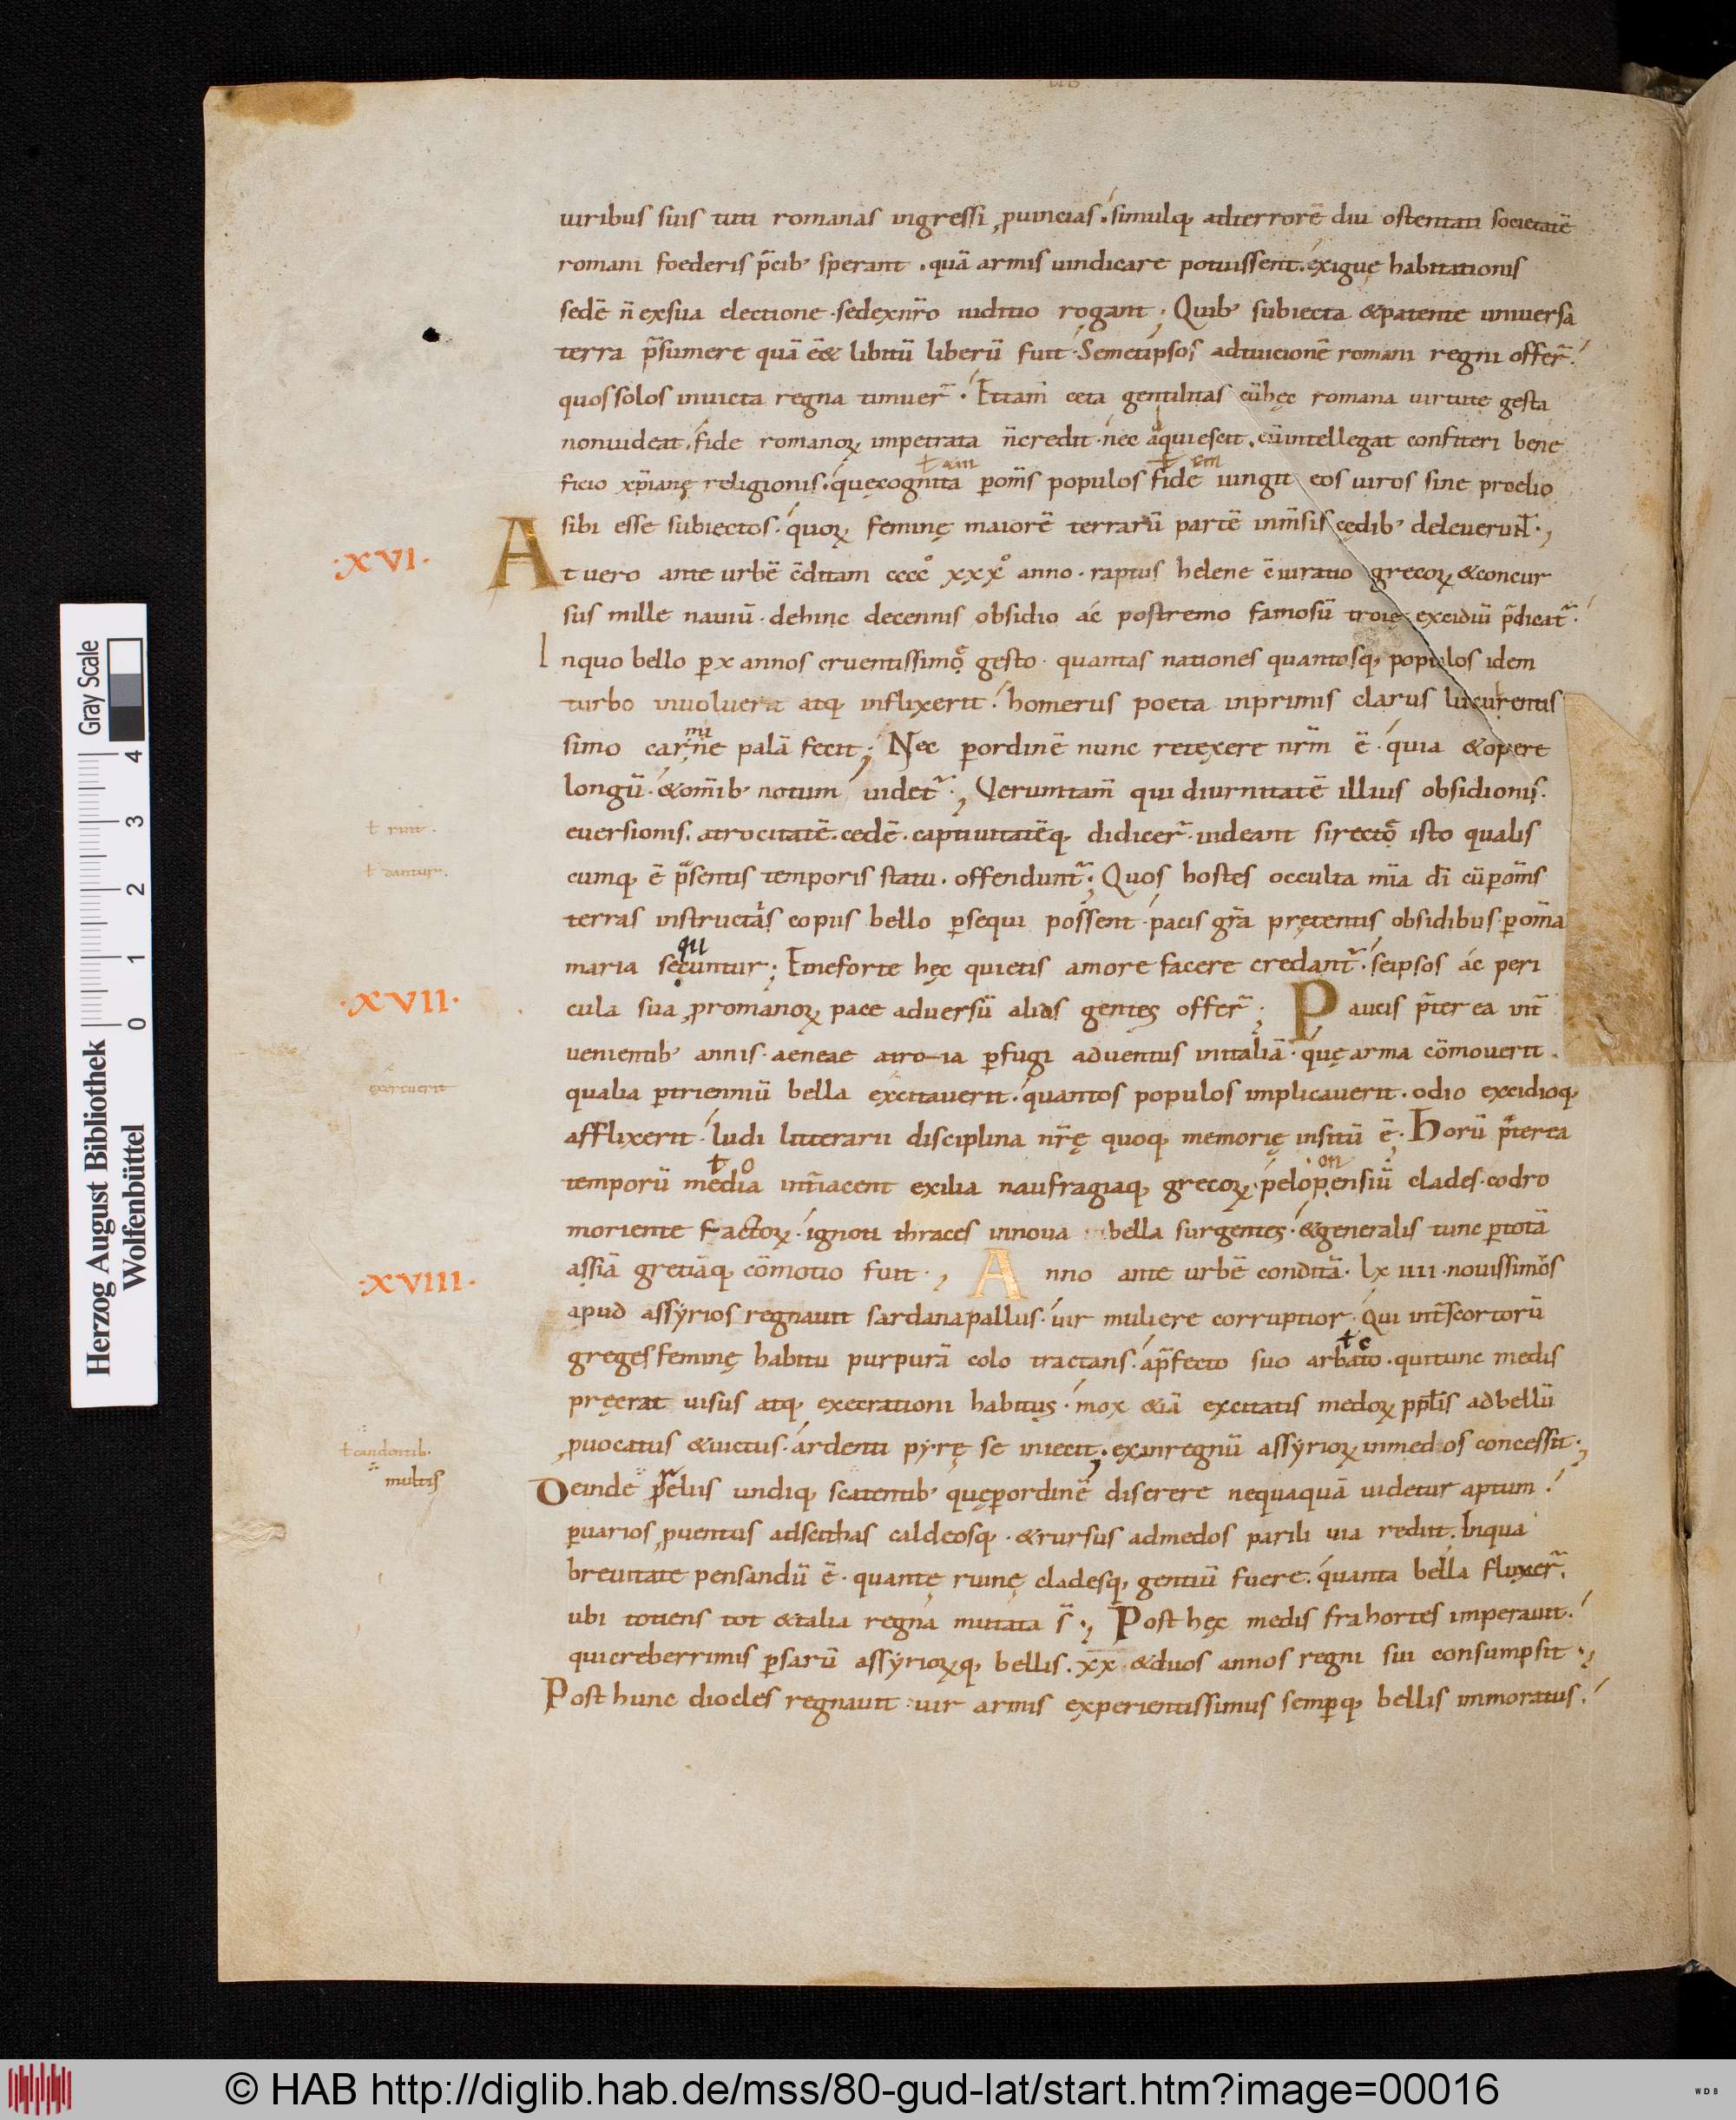 uiribus suis tuti romanas ingressi ꝓuincias. simulq; adterrorē diu ostentati societatē
romani foederis p̄cib; sperant. quā armis uindicare potuissent. exiguę habitationis
sedē n̄ exsua electione. sedexnr̄o iuditio rogant; Quib; subiecta &patente uniuersa
terra p̄sumere quā ēē& libitū liberū fuit. Semetipsos adtuicionē romani regni offer̄.
quossolos inuicta regna timuer̄. Ettam̄ ceca gentilitas cūhęc romana uirtute gesta
nonuideat. fide romanoꝝ impetrata n̄credit. nec adquiescit. cūintellegat confiteri bene
ł am ł em
ficio xp̄ianę religionis. quęcognita ꝑom̄s populos fide iungit eos uiros sine proelio
sibi esse subiectos. quoꝝ feminę maiorē terrarū partē inm̄sis cędib; deleuerunt.;
·XVI· At uero ante urbē cōditam cccc° xxx° anno. raptus helene cōiuratio grecoꝝ &concur
sus mille nauiū. dehinc decennis obsidio ac postremo famosū troię excidiū p̄dicat̄.
Inquo bello ꝑ x annos cruentissimo gesto. quantas nationes quantosq; populos idem
turbo inuoluerit atq; inflixerit. homerus poeta inprimis clarus luculentis
mi
simo carne palā fecit; Nec ꝑordinē nunc retexere nr̄m ē. quia &opere
longū. &om̄ib; notum uidet̄.; Verumtam̄ qui diurnitatē illius obsidionis.
ł runt.
euersionis. atrocitatē. cedē. captiuitatēq; didicer̄. uideant sirecto isto qualis
ł dantur.
cumq; ē p̄sentis temporis statu. offendunt̄; Quos hostes occulta mīa dī cūꝑom̄s
terras instructis copiis bello ꝑsequi possent. pacis gr̄a prętentis obsidibus. ꝑom̄a
qu
maria secuntur; Etneforte hęc quietis amore facere credant̄. seipsos ac peri
·XVII· cula sua ꝓromanoꝝ pace aduersū alias gentes offer̄; Paucis p̄terea int̄
uenientib; annis. aeneae atroia ꝑfugi aduentus initaliā. quę arma cōmouerit.
exercuerit
qualia ꝑtrienniū bella excitauerit. quantos populos implicauerit. odio excidioq;
afflixerit. ludi litterarii disciplina nr̄ę quoq; memorię insitū ē. Horū p̄terea
ł o on
temporū media int̄iacent exilia naufragiaq; grecoꝝ. pelopensiū clades. codro
moriente factoꝝ. ignoti thraces innoua bella surgentes. &generalis tunc ꝑtotā
·XVIII· assiā gretiāq; cōmotio fuit.; Anno ante urbē conditā. lxiiii. nouissimos
apud assyrios regnauit sardanapallus. uir muliere corruptior. Qui int̄scortorū
ł c
greges feminę habitu purpurā colo tractans. ap̄fecto suo arbato. quitunc medis
pręerat uisus atq; execrationi habitus. mox &iā excitatis medoꝝ pplīs adbellū
ꝓuocatus &uictus. ardenti pyrę se iniecit; exinregnū assyrioꝝ inmedos concessit.;
ł candentib.
multis
Deinde p̄eliis undiq; scatentib; quęꝑordinē diserere nequaquā uidetur aptum.
ꝑuarios ꝓuentus adscithas caldeosq;. &rursus admedos parili uia rediit. Inqua
breuitate pensandū ē. quantę ruinę cladesq; gentiū fuere. quanta bella fluxer̄.
ubi totiens tot &talia regna mutata s̄.; Post hęc medis frahortes imperauit.
quicreberrimis ꝑsarū assyrioꝝq; bellis. xx. &duos annos regni sui consumpsit.;
Post hunc diocles regnauit. uir armis experientissimus semꝑq; bellis immoratus.
Herzog August Bibliothek
Wolfenbüttel
0 1 2 3 4
Gray Scale
© HAB http://diglib.hab.de/mss/80-gud-lat/start.htm?image=00016
WDB